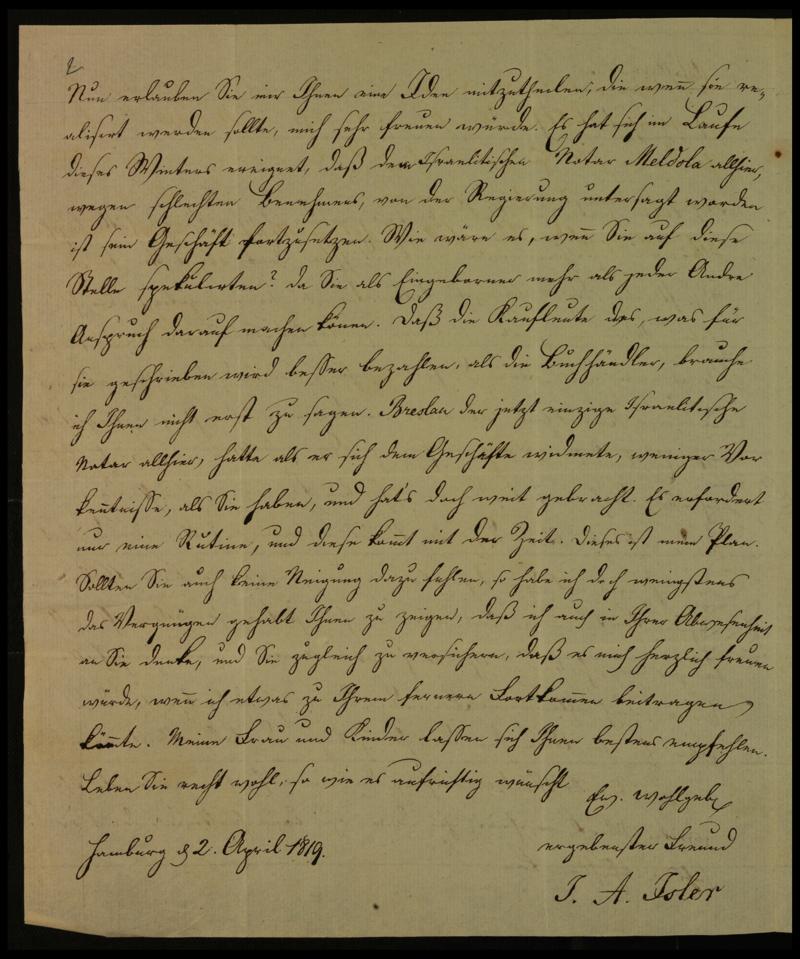 2
Nun erlauben Sie mir Ihnen eine Idee mitzutheilen, die wen̄ sie re-
alisirt werden sollte, mich sehr freuen würde. Es hat sich im Laufe
dieses Winters ereignet, daß dem Israelitischen Notar Meldola allhier,
wegen schlechten Benehmens, von der Regierung untersagt worden
ist sein Geschäft fortzusetzen. Wie wäre es, wen̄ Sie auf diese
Stelle spekulirten? da Sie als Eingeborner mehr als jeder Andre
Anspruch darauf machen kön̄en. Daß die Kaufleute das, was für
sie geschrieben wird besser bezahlen, als die Buchhändler, brauche
ich Ihnen nicht erst zu sagen. Breslau der jetzt einzige Israelitische
Notar allhier, hatte als er sich dem Geschäfte widmete, weniger Vor
ken̄tnisse, als Sie haben, und hat's doch weit gebracht. Es erfordert
nur eine Rutine, und diese kom̄t mit der Zeit. Dieses ist mein Plan.
Sollten Sie auch keine Neigung dazu fühlen, so habe ich doch weingstens
das Vergnügen gehabt Ihnen zu zeigen, daß ich auch in Ihrer Abwesenheit
an Sie denke, und Sie zugleich zu versichern, daß es mich herzlich freuen
würde, wen̄ ich etwas zu Ihrem fernern Fortkom̄en beitragen
kön̄te. Meine Frau und Kinder lassen sich Ihnen bestens empfehlen.
Leben Sie recht wohl, so wie es aufrichtig wünscht
Ew. Wohlgeb
Hamburg d 2. April 1819.
ergebenster Freund
J. A. Isler